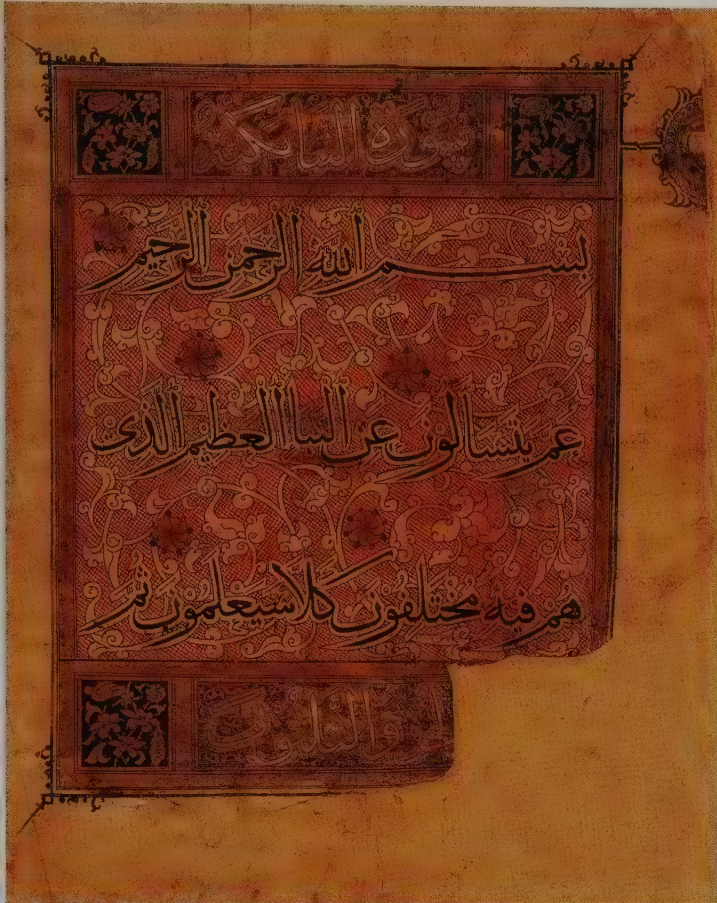 سورة النبا مكية
بسم الله الرحمن الرحيم
عم يتسالون عن النبا العظيم الذى
هم فيه مختلفون كلا سيعلمون ثم